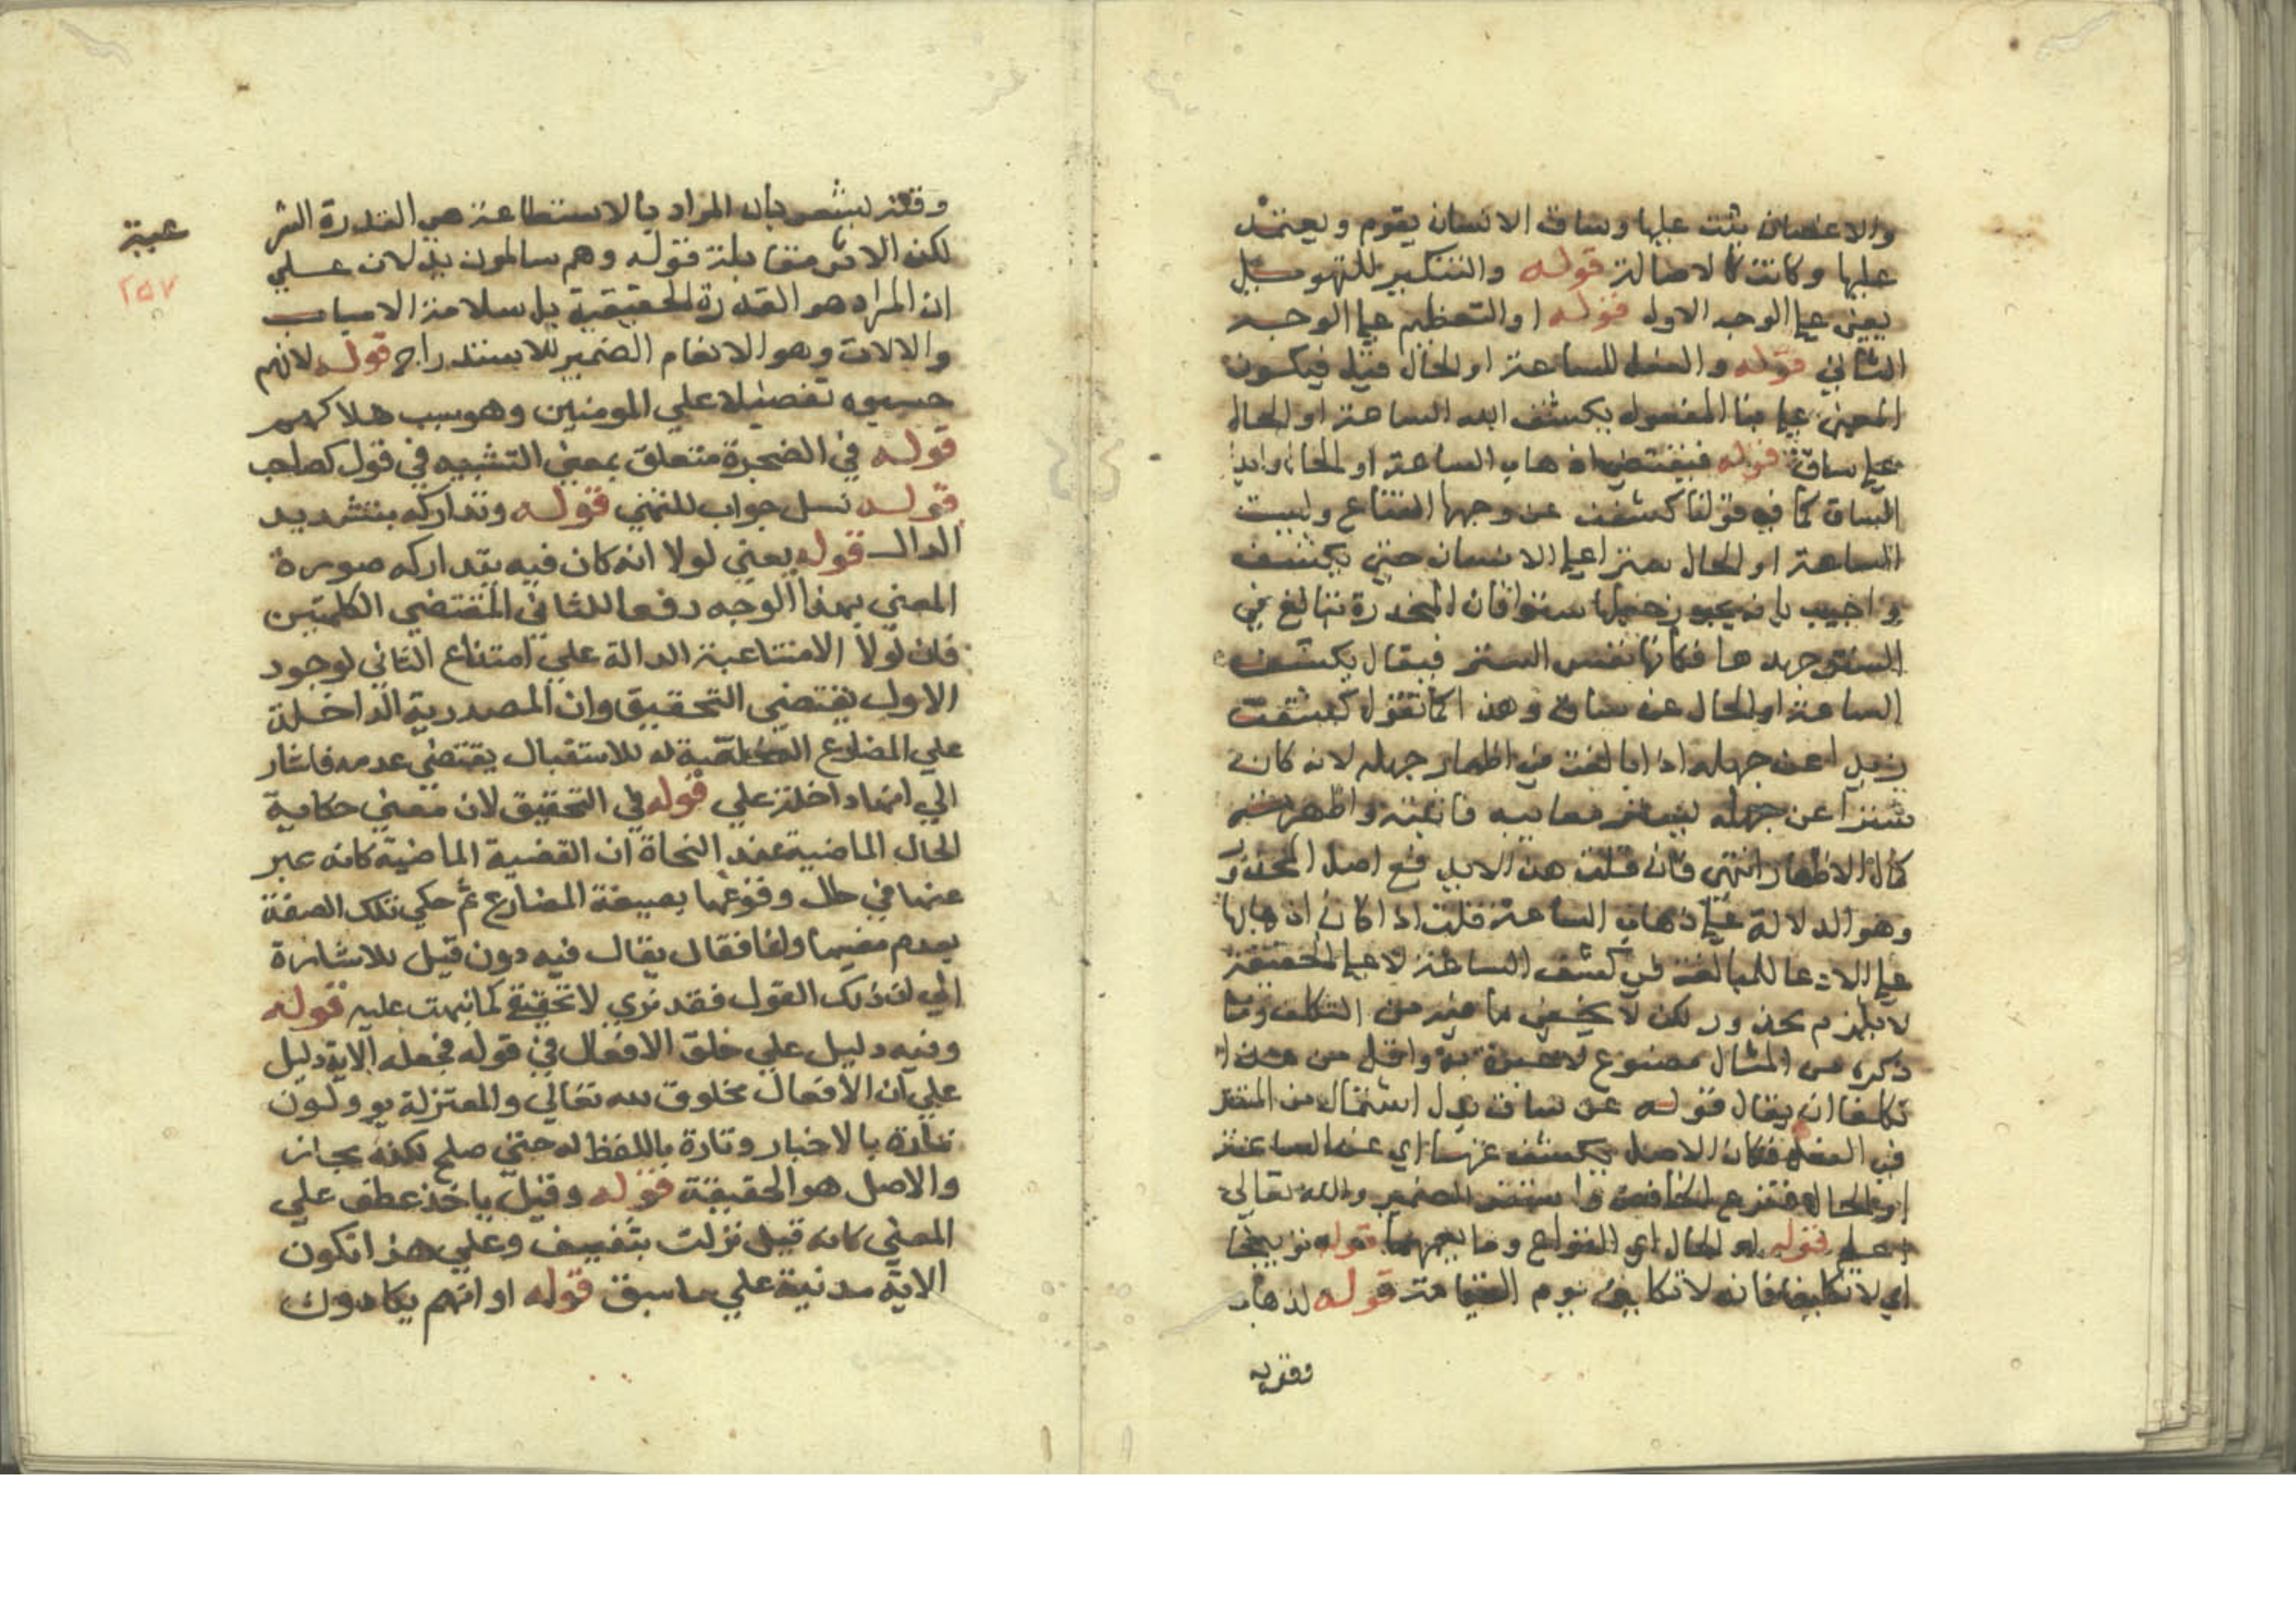 والاغصان يثبت عليها وساق الانسان يقوم ويعتمد
عليها وكانت كالاصالة قوله والتنكير للتهويل
يعني على الوجه الاول قوله او التعظيم على الوجه
الثاني قوله والفعل للساعة او الحال قيل فيكون
المعنى على بنا المفعول يكشف الله الساعة او الحال
على ساق قوله فيقتضي اذهاب الساعة او الحال وابدا
الساق كما في قولنا كشفت عن وجهها القناع وليست
الساعة او الحال سترا على الانسان حتى يكشف
واجيب بانه يجوز جعلها سترا فان المخدرة تبالغ في
الستر جهدها فكأنها نفس الستر فيقال يكشف
الساعة او الحال عن ساق وهذا كما تقول كشفت
زيدا عن جهله اذا بالغت في اظهار جهله لانه كان
سترا عن جهله يستر معايبه فابنته واظهرته
كمال الاظهار انتهى فان قلت هذا لا يدفع اصل المحذور
وهو الدلالة على ذهاب الساعة قلت اذا كان اذهابها
على الادعا للمبالغة في كشف الساعة لا على الحقيقة
لا يلزم محذور لكن لا يخفى ما فيه من التكلف وما
ذكره من المثال مصنوع لا عبرة به واقل من هذا
تكلفا ان يقال قوله عن ساق بدل اشتمال من
في الفعل فكان الاصل يكشف عنها اي عن الساعة
او الحال فنزع الخافض واستتر الضمير والله تعالى
اعلم قوله او الحال اي القواع وما قوله توبيخا
اي لا تكليفا فانه لا تكليف يوم القيامة قوله لذهاب
وقته
وقته يشعر بان المراد بالاستطاعة هي القدرة الشر
عية
لكن الاتي مقابلة قوله وهم سالمون يدلان علي
٢٥٧
ان المراد هو القدرة الحقيقية بل سلامة الاسباب
والالات وهو الانعام الضمير للاستدراج قوله لانهم
حسبوه تفضيلا علي المومنين وهو سبب هلاكهم
قوله في الضجرة متعلق بمعني التشبيه في قول كصاحب
قوله نسل جواب للتمني قوله وتداركه بتشديد
الدال قوله يعني لولا انه كان فيه يتداركه صورة
المعني بهذا الوجه دفعا للثاني المقتضي الكلمتين
فان لولا الامتناعية الدالة علي امتناع الثاني لوجود
الاول يقتضي التحقيق وان المصدرية الداخلة
علي المضارع المخلصة له للاستقبال يقتضي عدمه فاشار
الي انها داخلة علي قوله في التحقيق لان معني حكاية
الحال الماضية عند النحاة ان القضية الماضية كانه عبر
عنها في حال وقوعها بصيغة المضارع ثم حكي تلك الصفة
بعدم مضيها ولذا فقال يقال فيه دون قيل للاشارة
الي ان ذلك القول فقد تري لا تحقيق كما نبهت عليه قوله
وفيه دليل علي خلق الافعال في قوله فجعله الاية دليل
علي ان الافعال مخلوق لله تعالي والمعتزلة يوولون
تارة بالاخبار وتارة باللفظ له حتي صلح لكنه مجاز
والاصل هو الحقيقة قوله وقيل ياخذ عطف علي
المعني كانه قيل نزلت بثقيف وعلي هذا تكون
الاية مدنية علي ما سبق قوله او انهم يكادون